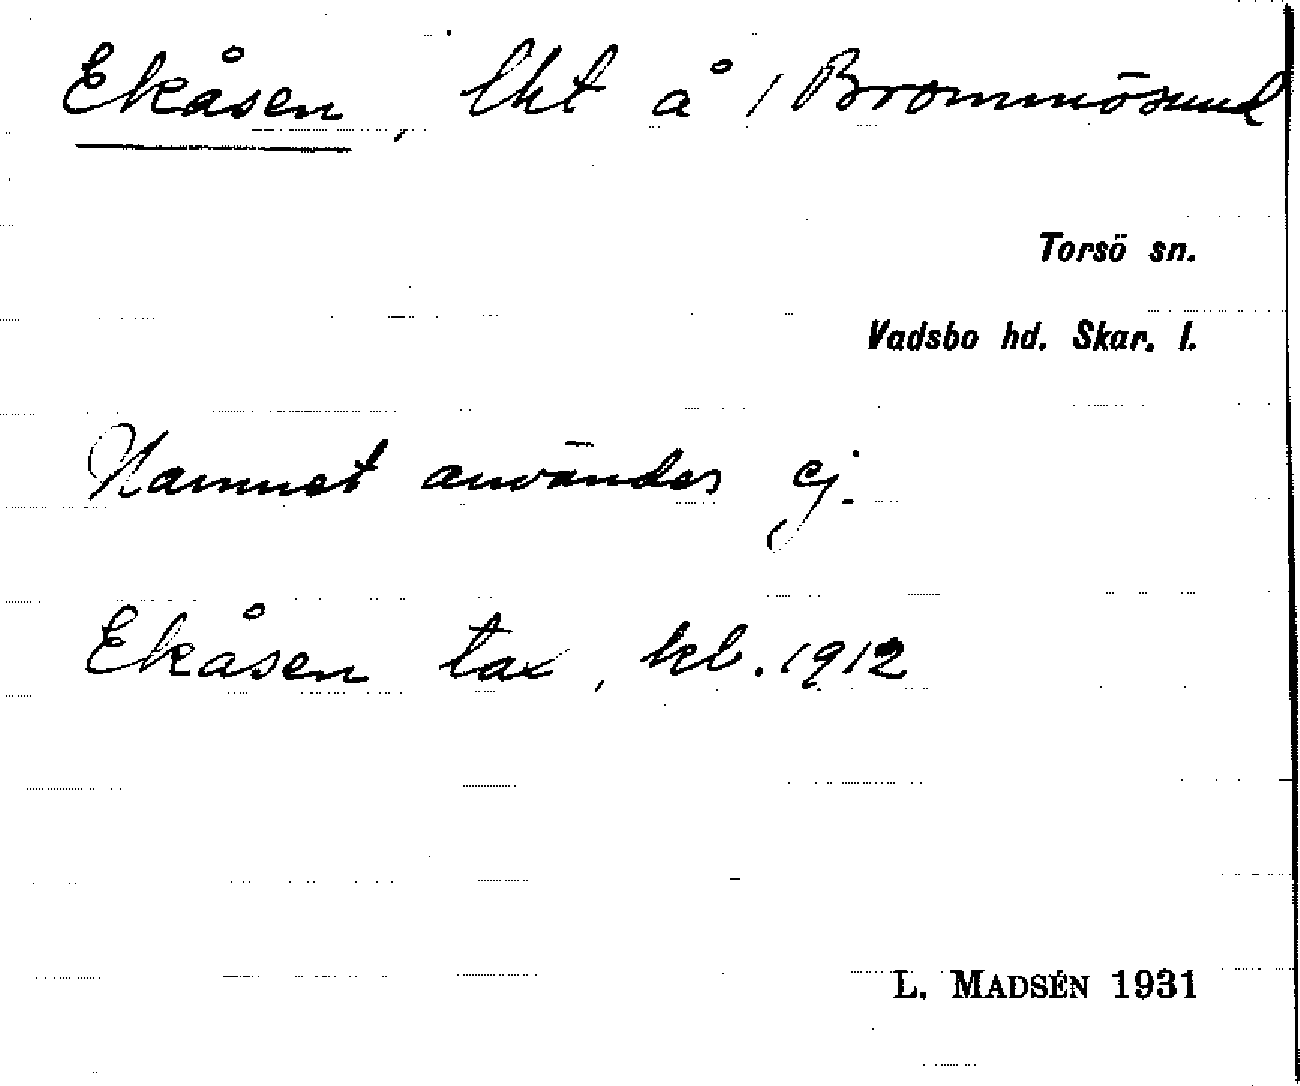 Ekåsen, lht å 1 Brommösund
Torsö sn.
Vadsbo hd. Skar. l.
Namnet användes ej.
Ekåsen tax, kl. 1912
L. MADSÉN 1931